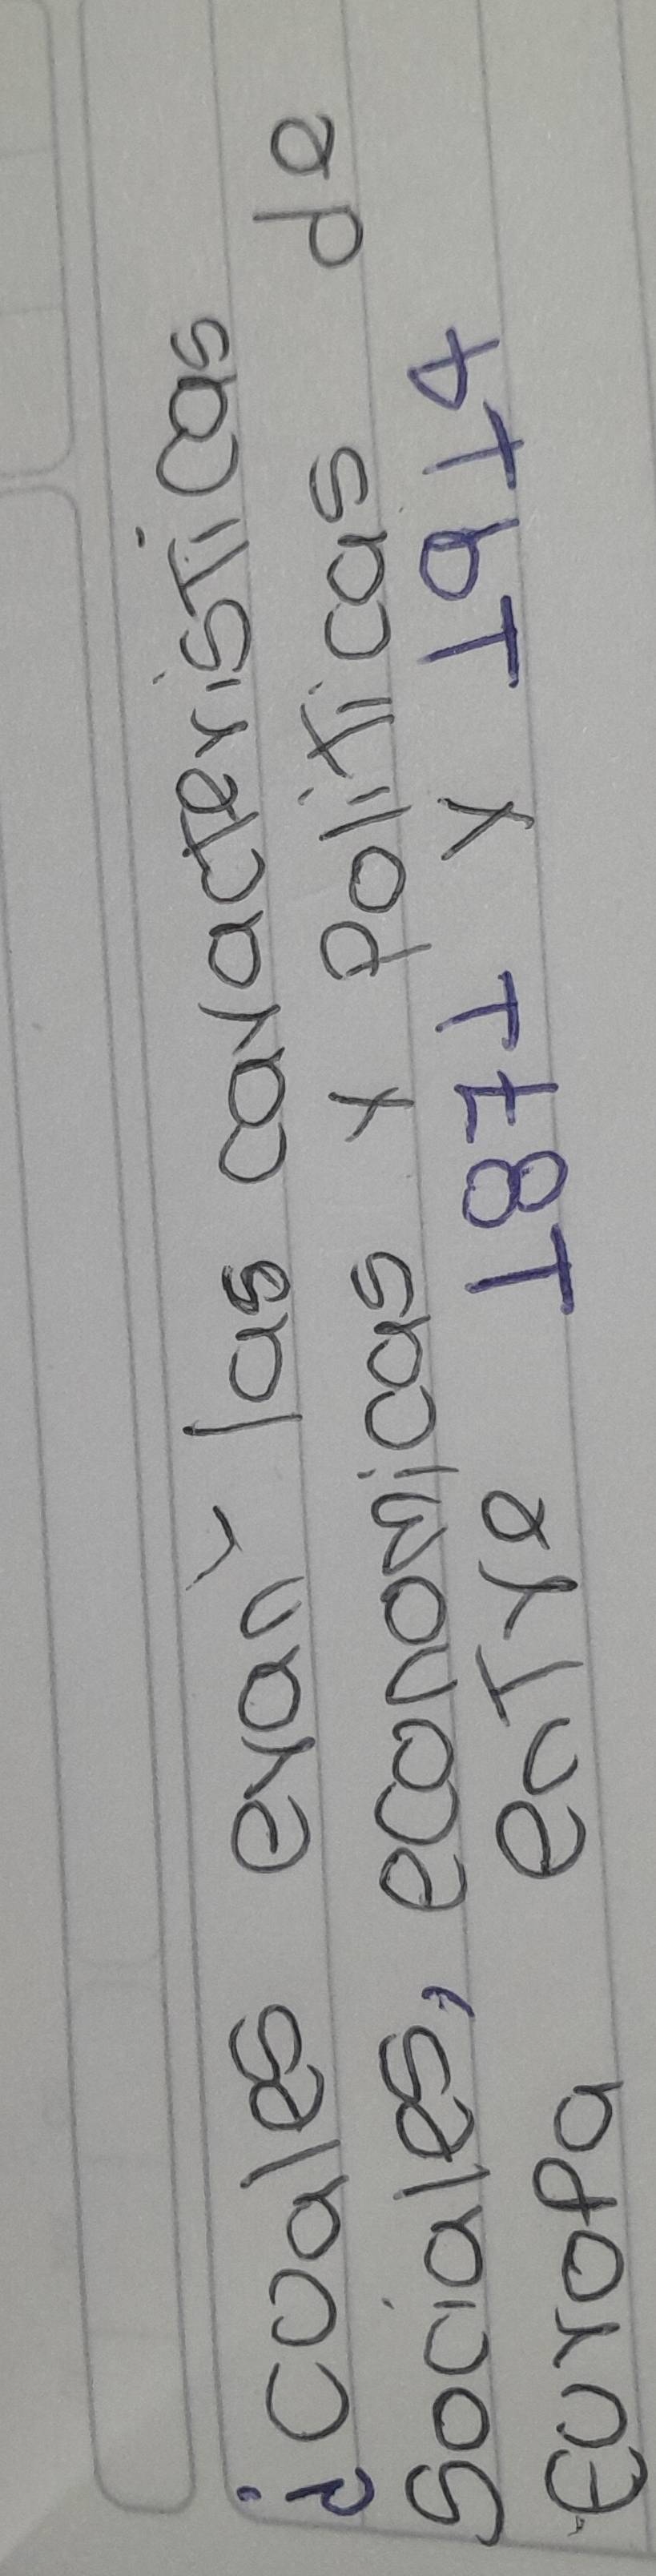 ¿Cuales eran las características
Sociales, economicas y políticas de
Europa entre 1871 y 1914